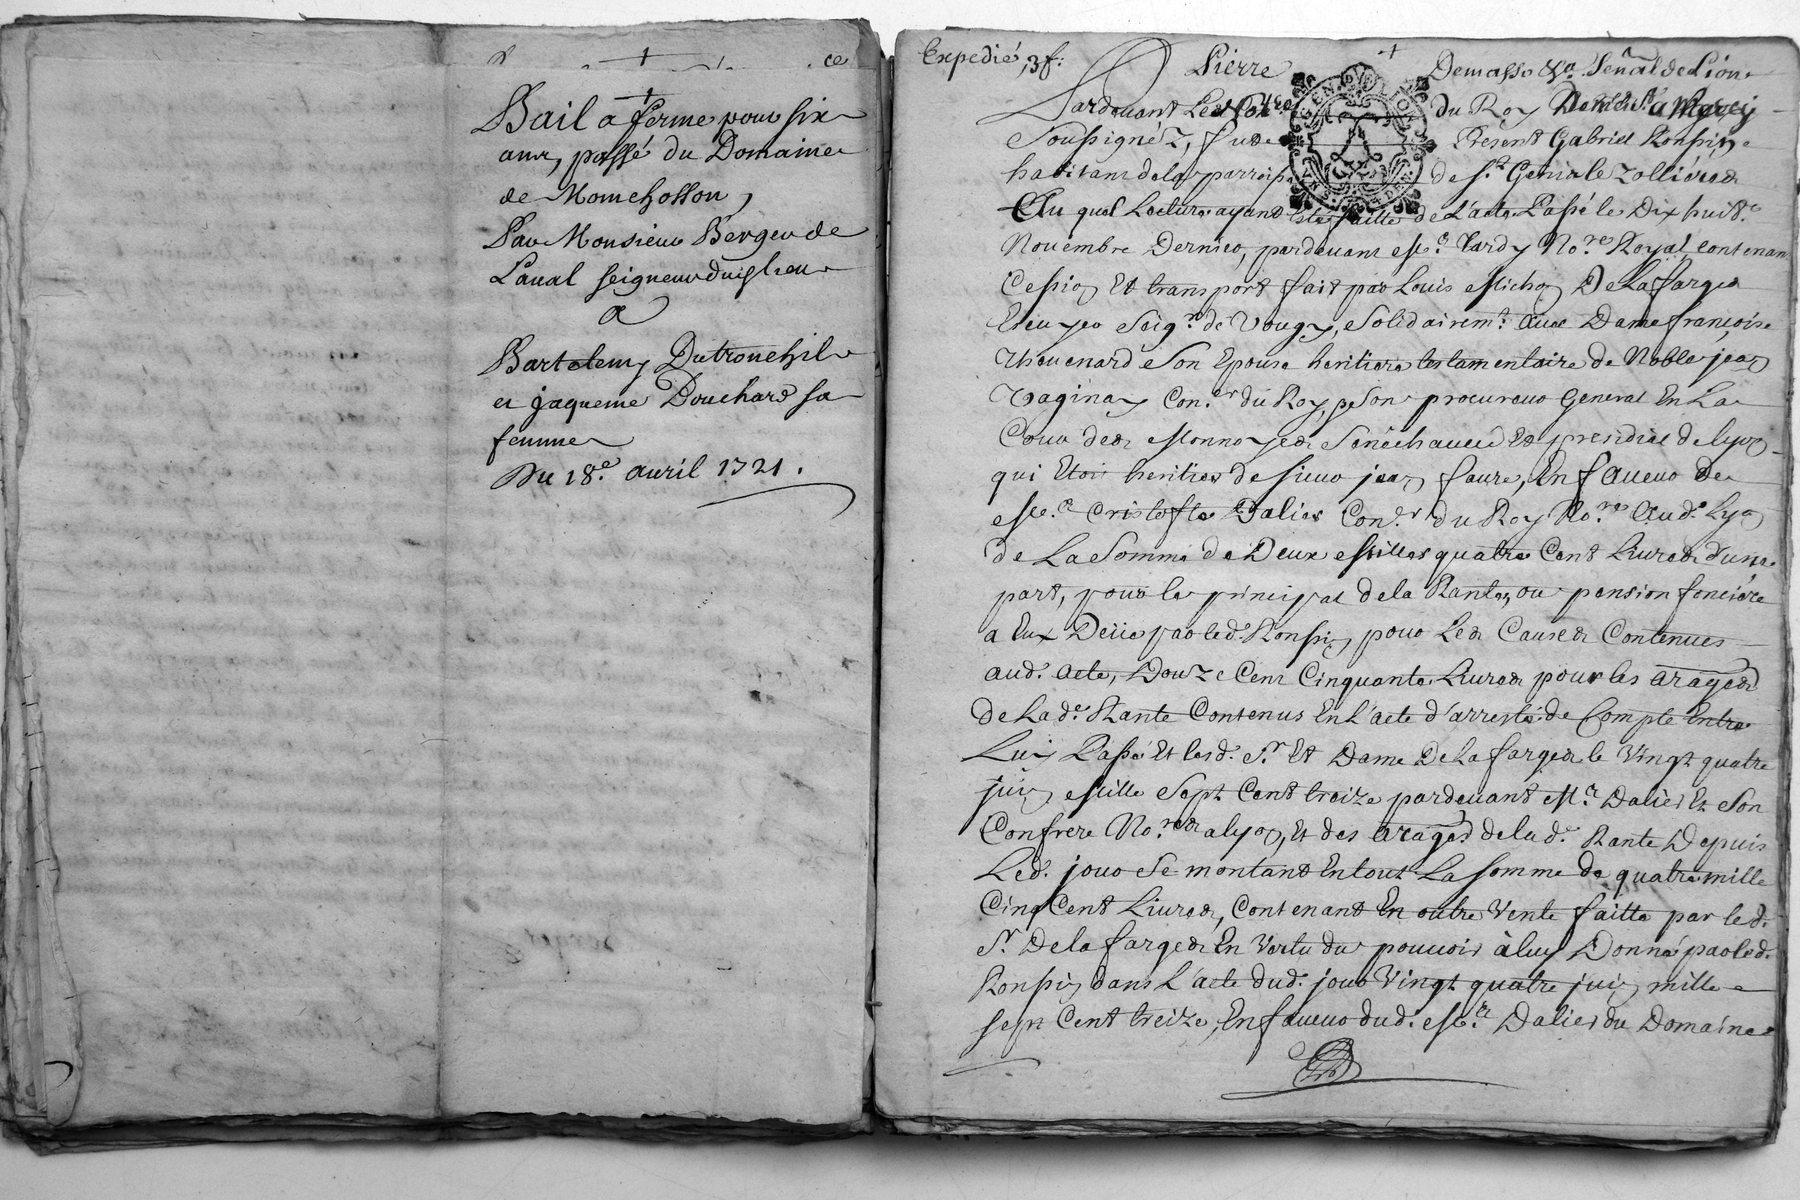 Bail a ferme pour six
ans, passé du Domaine
de Momchosson,
Par Monsieur Berger de
Laual seigneur du
a
Bartelemy Dutronchil
et jaqueme Douchard sa
femme
Du 18e. auril 1721.
Expedié, 3 f:
Pierre Demasso
Pardeuant Les du Roy
Soussignéz, fude Present Gabriel Ronsin
habitant de la parroisse de St. Genis le zollieres
Au quel Lecture ayant Esté faitte de L'acte Passé le Dix huite.
Nouembre Dernier, pardeuant Me. Tardy Nore. Royal, contenan
Cession Et transport fait par Louis Michon De La farges
Ecuyer Seigr. de Vougy, Solidairemt. auec Dame françoise
Thouenard Son Epouse heritiere testamentaire de Noble jean
Vaginay Coner. du Roy, & Son procureur General En La
Cour des Monnoyes Senéchaucée Et presidial de lyon
qui Etoit heritier de sieur jean faure, En faueur de
Me. Cristofle Dalier Coner. du Roy Nore. Aud. Lyon
de La Somme de Deux Milles quatre Cent Liures d'une
part, pour le principal de la Rante, ou pension fonciére
a Eux Deüe par led. Ronsin, pour Les Causes Contenues
aud. acte, Douze Cent Cinquante Liures pour les arages
de Lade. Rante Contenus En L'acte d'arresté de Compte Entre
Luy Passé Et lesd. Sr. Et Dame De La farges le Vingt quatre
juin Mille Sept Cent treize pardeuant Me. Dalier Et Son
Confrere Nores. a lyon, Et des arages de lade. Rante Depuis
Led. jour Se montant En tout La somme de quatre mille
Cinq Cent Liures, Contenant En outre Vente faitte par led.
Sr. De la farges En Vertu du pouuoir à luy Donné par led.
Ronsin dans L'acte dud. jour Vingt quatre juin mille
sept Cent treize, En faueur dud. Me. Dalier du Domaine